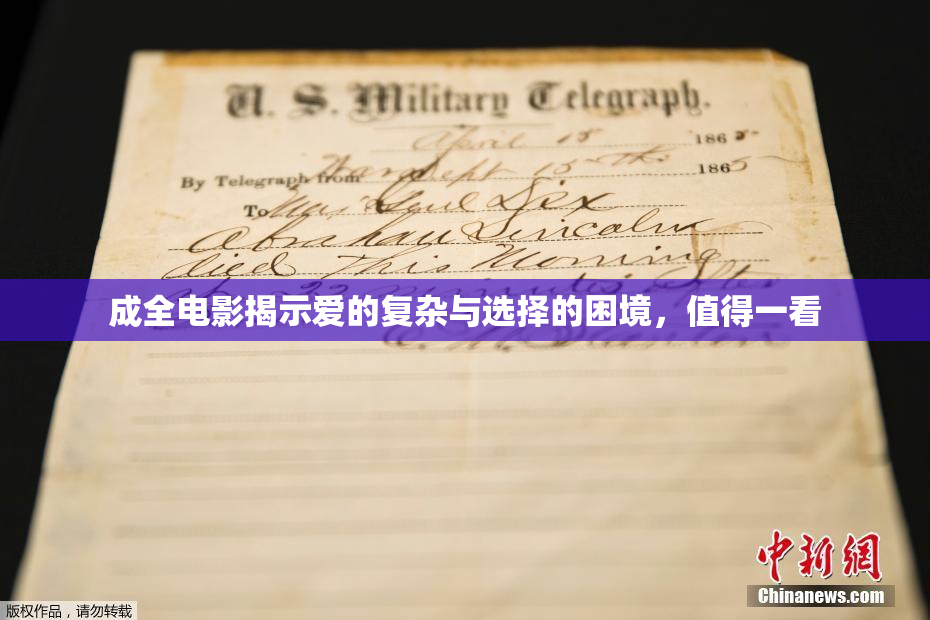 U. S. Military Telegraph.
April 15 1865
By Telegraph from War Dept 15th 1865
To Maj Genl Dix
Abraham Lincoln
died this morning
22 minutes after
成全电影揭示爱的复杂与选择的困境，值得一看
E. M. Stanton
中新网
Chinanews.com
版权作品，请勿转载